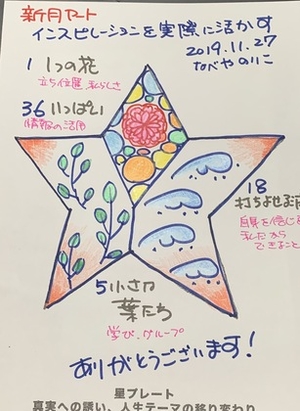 新月アート
インスピレーションを実際に活かす
2019.11.27
なべやのりこ
1 1つの花
立ち位置、私らしさ
36 いっぱい
情報の活用
18
打ちよせる
自身を信じ
私だから
できること
5 小さな
葉たち
学び、グループ
ありがとうございます!
星プレート
真実への誘い、人生テーマの移り変わり